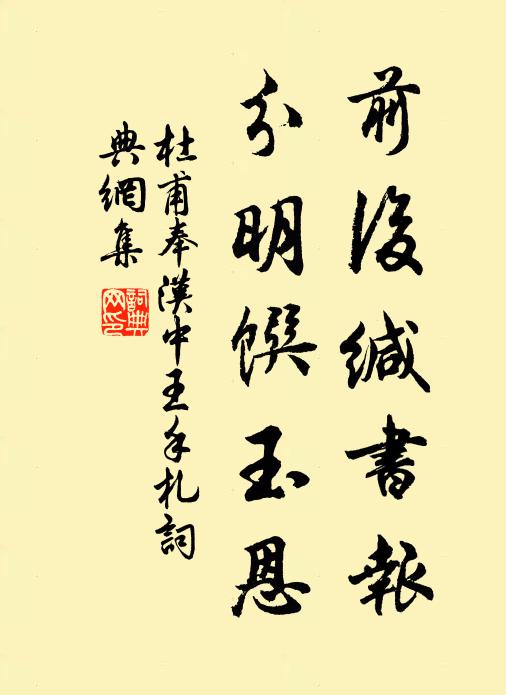 前後緘書報
分明饌玉恩
杜甫奉漢中王手札詞
典網集
詞典網印